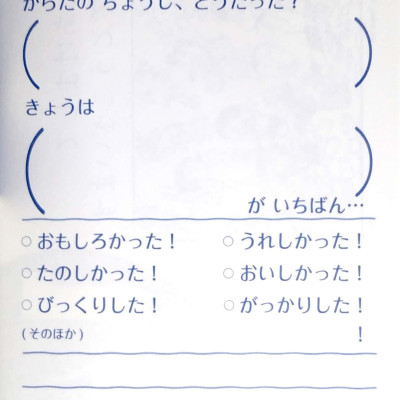 からだの ちょうし、どうだった？
きょうは
が いちばん…
○ おもしろかった！ ○ うれしかった！
○ たのしかった！ ○ おいしかった！
○ びっくりした！ ○ がっかりした！
(そのほか) ！